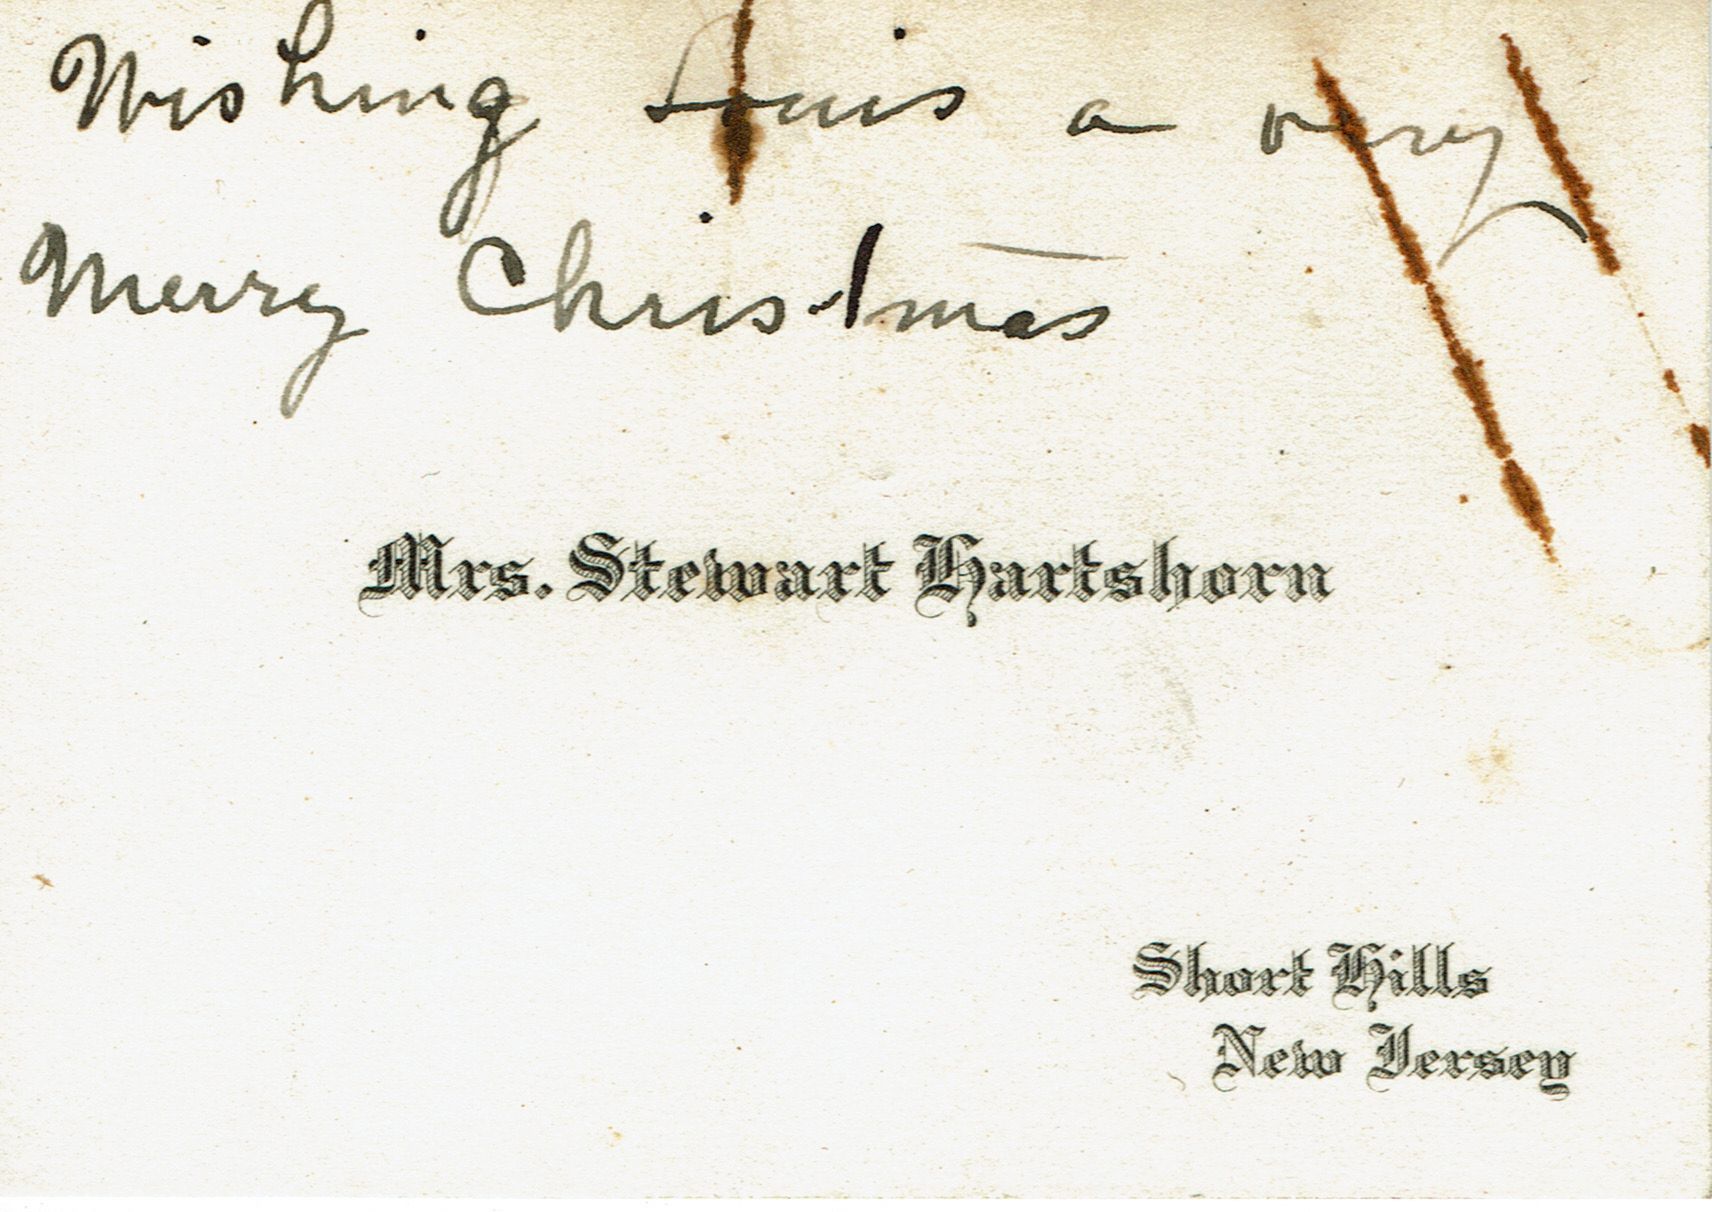 Wishing Louis a very
Merry Christmas
Mrs. Stewart Hartshorn
Short Hills
New Jersey